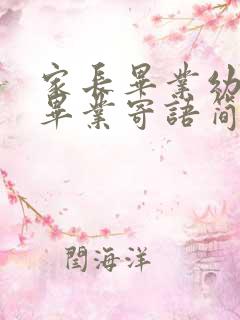 家長畢業幼
畢業寄語簡
閆海洋